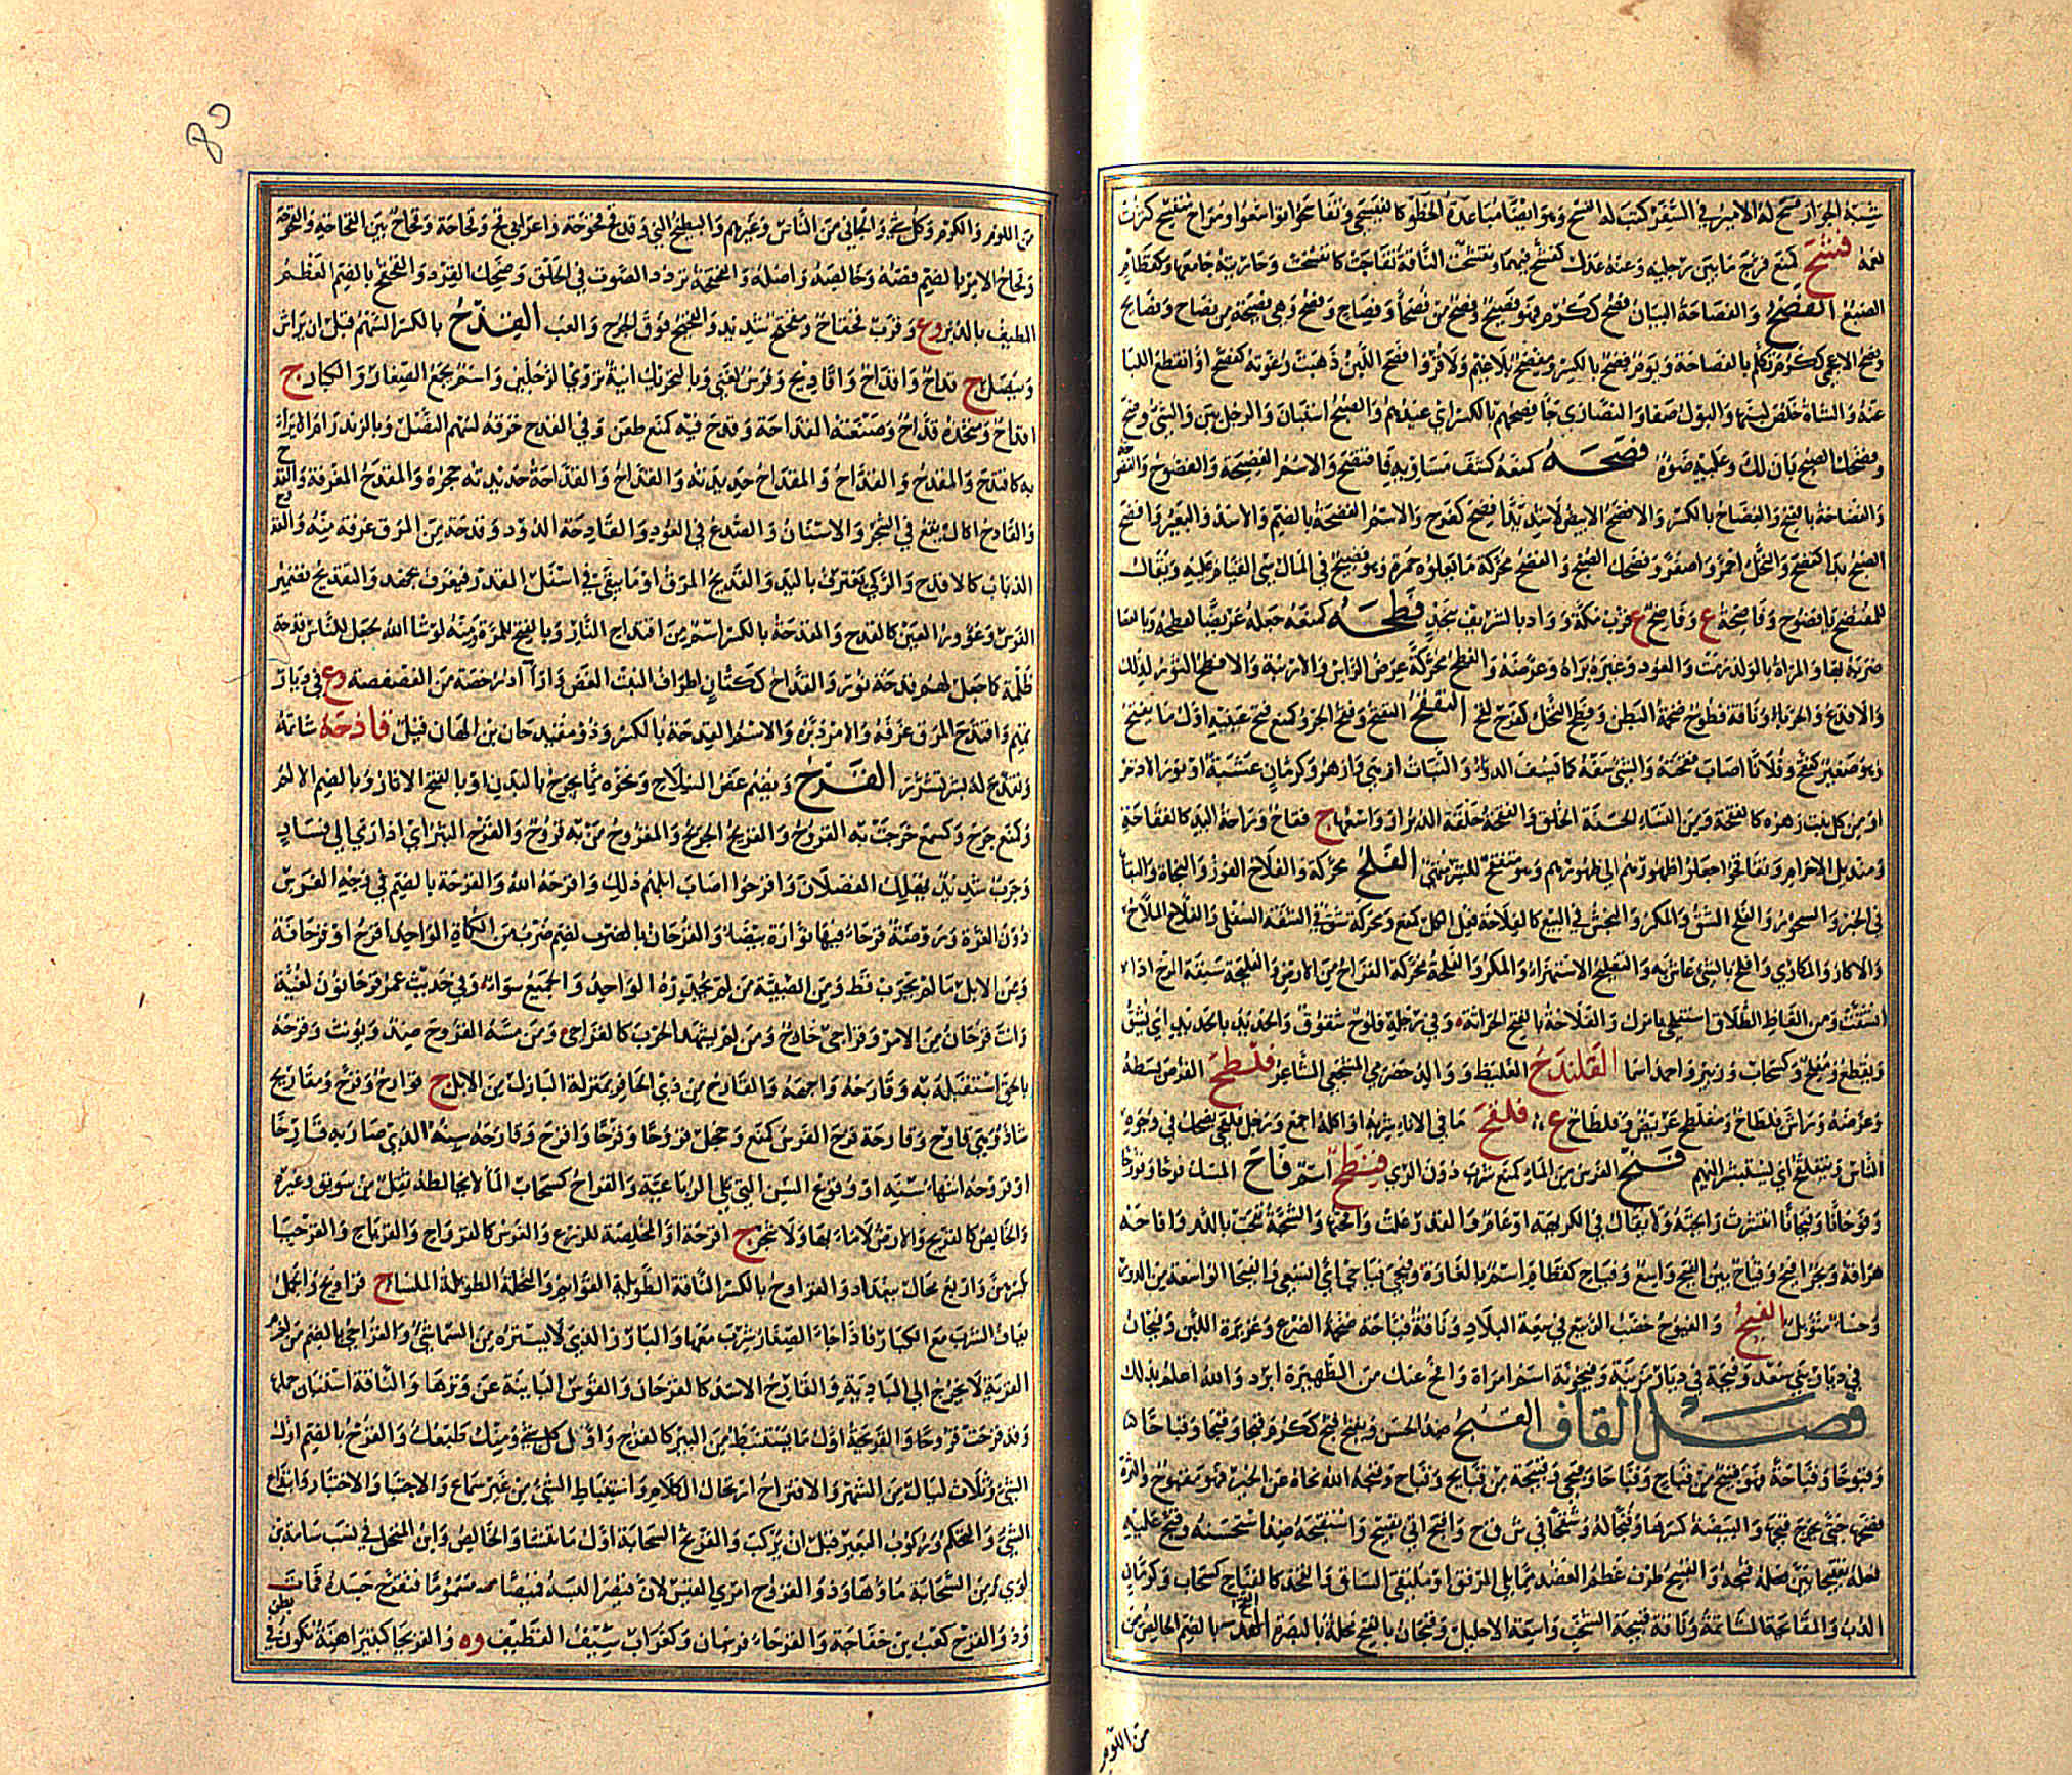 شبه الجواز فسح له الامير في السفر كتب له الفسح وهو ايضا مباعدة الخطو كالفيسحى وتفاسحوا توسعوا ومراح منفسح كثرت
نعمه فشح كمنع فرج ما بين رجليه وعنه عدل كفشح فيهما وتفشحت الناقة تفاجت كانفشحت وجاريته جامعها وكقطام
الضبع الفصح والفصاحة البيان فصح ككرم فهو فصيح وفصح من فصحاء وفصاح وفصح وهي فصيحة من فصاح وفصائح
وفصح الاعجمي ككرم تكلم بالفصاحة ويوم فصح بالكسر ومفصح بلا غيم ولا قر وافصح اللبن ذهبت رغوته كفصح او انقطع اللبا
عنه والشاة خلص لبنها والبول صفا والنصارى جاء فصحهم بالكسر اي عيدهم والصبح استبان والرجل بين والشئ وضح
وفصحك الصبح بان لك وغلبك ضوءه فضحه كمنعه كشف مساويه فافتضح والاسم الفضيحة والفضوح
والفضاحة بالفتح والفضاح بالكسر والافضح الابيض لا شديدا فضح كفرح والاسم الفضحة بالضم والاسد والبعير وافضح
الصبح بدا كفضح والنخل احمر واصفر وفضحك الصبح والفضح محركة ما تعلوه حمرة وهو فضيح في المال سيئ القيام عليه ويقال
للمفتضح يا فضوح وفاضحة ع وفاضح ع قرب مكة وواد بالشريف بنجد فطحه كمنعه جعله عريضا كفطحه وبالعصا
ضربه بها والمراة بالولد رمت والعود وغيره براه وعرضه والفطح محركة عرض الراس والارنبة والافطح الثور لذلك
والافدع والحرباء وناقة فطوح ضخمة البطن وفطح النخل كفرح لقح التفقح التفتح وفقح الجرو كمنع فتح عينيه اول ما يفتح
وهو صغير كفقح وفلانا اصاب فقحته والشئ سفه كما يسف الدواء والنبات ازهى وازهر وكرمان عشبة او نور الاذخر
او من كل نبت زهره كالفقحة ومن النساء الحسنة الخلق والفقحة حلقة الدبر او واسعها ج فقاح وراحة اليد كالفقاحة
ومنديل الاحرام وتفاقحوا جعلوا ظهورهم الى ظهورهم وهو متفقح للشر متهيئ الفلح محركة والفلاح الفوز والنجاة والبقاء
في الخير والسحور والفلح الشق والمكر والنجش في البيع كالفلاحة فعل الكل كمنع ومحركة شق في الشفة السفلى والفلاح الملاح
والاكار والمكاري وافلح بالشئ عاش به والتفليح الاستهزاء والمكر والفلحة محركة القراح من الارض والفليحة سنفة المرخ اذا
انشقت ومن الفاظ الطلاق استفلحي بامرك والفلاحة بالفتح الحراثة وفي رجله فلوح شقوق والحديد بالحديد يفلح اي يشق
ويقطع ومفلح وكسحاب وزبير واحمد اسما الفلندح الغليظ ووالد حضرمي الشجعي الشاعر فلطح القرص بسطه
وعرضه وراس فلطاح ومفلطح عريض وفلطاح ع فلقح ما في الاناء شربه او اكله اجمع ورجل فلقحي يضحك في وجوه
الناس ويتفلقح اي يستبشر اليهم فنح الفرس من الماء كمنع شرب دون الري فنطح اسم فاح المسك فوحا وفؤوحا
وفوحانا وفيحانا انتشرت رائحته ولا يقال في الكريهة او عام والقدر غلت وافحتها والشجة نفحت بالدم وافاحه
هراقه وبحر افيح وفياح بين الفيح واسع وفياح كقطام اسم للغارة وفيحي فياح اي اتسعي والفيحاء الواسعة من الدور
وحساء متوبل الفيح والفيوح خصب الربيع في سعة البلاد وناقة فياحة ضخمة الضرع وغزيرة اللبن وفيحان
في ديار بني سعد وفيحة في ديار مزينة وفيحونة اسم امراة وافح عنك من الظهيرة ابرد والله اعلم بذلك
فصل القاف القبح ضد الحسن ويفتح قبح ككرم قبحا وقبحا وقباحا
وقبوحا وقباحة فهو قبيح من قباح وقباحا وقبحى وقبيحة من قبائح وقباح وقبحه الله نحاه عن الخير فهو مقبوح والبثرة
فضخها حتى يخرج قيحها والبيضة كسرها وقبحا له وشقحا في ش ق ح واقبح اتى بقبيح واستقبحه ضد استحسنه وقبح عليه
فعله تقبيحا بين قبحه والقبيح طرف عظم العضد مما يلي المرفق او ملتقى الساق والفخذ كالقباح كسحاب وكرمان
الدب والمقابحة المشاتمة وناقة قبيحة الشخب واسعة الاحليل وقبحان بالفتح محلة بالبصرة القح بالضم الخالص من
من اللوم
من اللوم والكرم وكل شئ والجافي من الناس وغيرهم والبطيخ النئ وقد قح قحوحة واعرابي قح وقحاحة وقحاح بين القحاحة والقحوحة
وقحاح الامر بالضم فصه وخالصه واصله والقحقحة تردد الصوت في الحلق وضحك القرد والقحقح بالضم العظم
المطيف بالدبر وع وقرب قحقاح ومقحقح شديد والقحيح فوق الجرع والعب القدح بالكسر السهم قبل ان يراش
وينصل ج قداح واقداح واقاديح وفرس لغني وبالتحريك انية تروي الرجلين واسم يجمع الصغار والكبار ج
اقداح ومتخذه قداح وصنعته القداحة وقدح فيه كمنع طعن وفي القدح خرقه لسهم النصل وبالزند رام الايراء
به كاقتدح والمقدح والقداح والمقداح حديدته والقداح والقداحة حديدته حجره والمقدح المغرفة
والقادح اكال يقع في الشجر والاسنان والصدع في العود والقادحة الدود وقدحة من المرق غرفة منه
الذباب كالاقدح والركي تغترف باليد والقديح المرق او ما يبقى في اسفل القدر فيغرف بجهد والتقديح تضمير
الفرس وغؤور العين كالقدح والقدحة بالكسر اسم من اقتداح النار وبالفتح للمرة ومنه لو شاء الله لجعل للناس قدحة
ظلمة كما جعل لهم قدحة نور والقداح ككتان اطراف النبت الغض وارآد رخصة من الفصفصة وع في ديار
تميم واقتدح المرق غرفه والامر دبره والاسم القدحة بالكسر وذو مقيدحان بن الهان قيل قادحه شاتمه
وتقدح له بشر تشزر القرح ويضم عض السلاح ونحوه مما يجرح بالبدن او بالفتح الاثار وبالضم الالم
وكمنع جرح وكسمع خرجت به القروح والقريح الجريح والمقروح من به قروح والقرح البثر اذا ترامى الى فساد
وجرب شديد يهلك الفصلان واقرحوا اصاب ابلهم ذلك واقرحه الله والقرحة بالضم في وجه الفرس
دون الغرة وروضة قرحاء فيها نوارة بيضاء والقرحان بالضم ضرب من الكماة الواحد اقرح او قرحانة
ومن الابل ما لم يجرب قط ومن الصبية من لم يجدر الواحد والجميع سواء وفي حديث عمر قرحانون لغية
وانت قرحان من الامر وقراحي خارج ومن لم يشهد الحرب كالقراحي ومن مسه القروح ضد ويؤنث وقرحه
بالحق استقبله به وقارحه واجهه والقارح من ذي الحافر بمنزلة البازل من الابل ج قوارح وقرح ومقاريح
شاذ وهي قارح وقارحة قرح الفرس كمنع وخجل قروحا وقرحا واقرح وقارحه سنه الذي صار به قارحا
او قروحه انتهاء سنه او وقوع السن التي تلي الرباعية والقراح كسحاب الماء لا يخالطه ثفل من سويق وغيره
والخالص كالقريح والارض لا ماء بها ولا شجر ج اقرحة او المخلصة للزرع والغرس كالقرواح والقرياح والقرحياء
بكسرهن واربع محال ببغداد والقرواح بالكسر الناقة الطويلة القوائم والنخلة الطويلة الملساء ج قراويح والجمل
يعاف الشرب مع الكبار فاذا جاء الصغار شرب معها والبارز الذي لا يستره من السماء شئ والقراحي بالضم من لزم
القرية لا يخرج الى البادية والقارح الاسد كالقرحان والقوس البائنة عن وترها والناقة استبان حملها
وقد قرحت قروحا والقريحة اول ما يستنبط من البئر كالقرح واول كل شئ ومنك طبعك والقرح بالضم اول
الشئ وثلاث ليال من الشهر والاقتراح ارتجال الكلام واستنباط الشئ من غير سماع والاجتباء والاختيار وابتداع
الشئ والتحكم وركوب البعير قبل ان يركب والقريح السحابة اول ما تنشا والخالص وابن المنخل في نسب سامة بن
لوي ومن السحابة ماؤها وذو القروح امرؤ القيس لان قيصر البسه قميصا مسموما فتقرح جسده فمات
وذو القرح كعب بن خفاجة والقرحاء فرسان وكغراب سيف القطيف وه والقريحاء كبتيراء هنة تكون في بطن